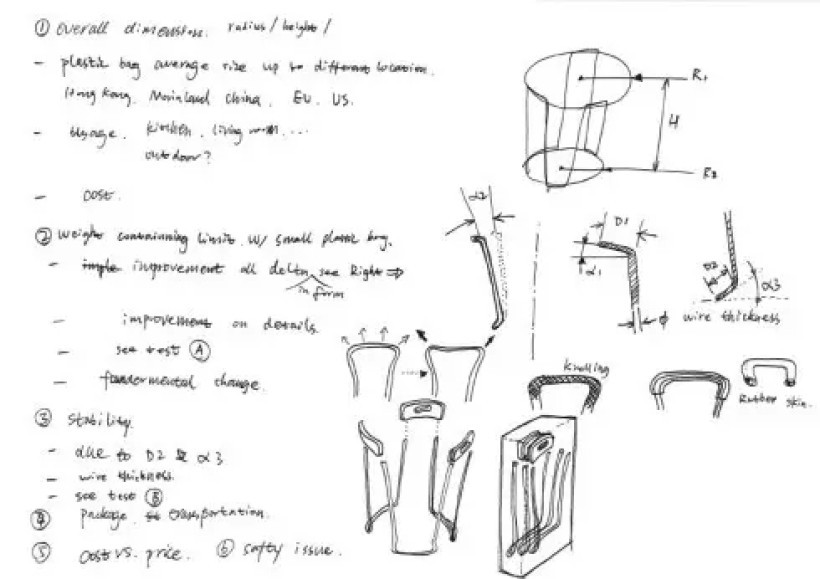 ① overall dimension. radius / height /
- plastic bag average size up to different location.
Hong Kong. Mainland China. EU. US.
- Usage. kitchen. living room...
outdoor?
- cost.
② Weight containning limits. W/ small plastic bag.
- improvement all delta, see Right ⇒
in form
- improvement on details.
- see test Ⓐ
- fundermental change.
③ Stability.
- due to D2 & α3
- wire thickness.
- see test Ⓑ
④ package. transportation.
⑤ cost vs. price. ⑥ safty issue.
R1
H
R2
α2
D1
α1
φ
D2
α3
wire thickness
Knulling
Rubber skin.